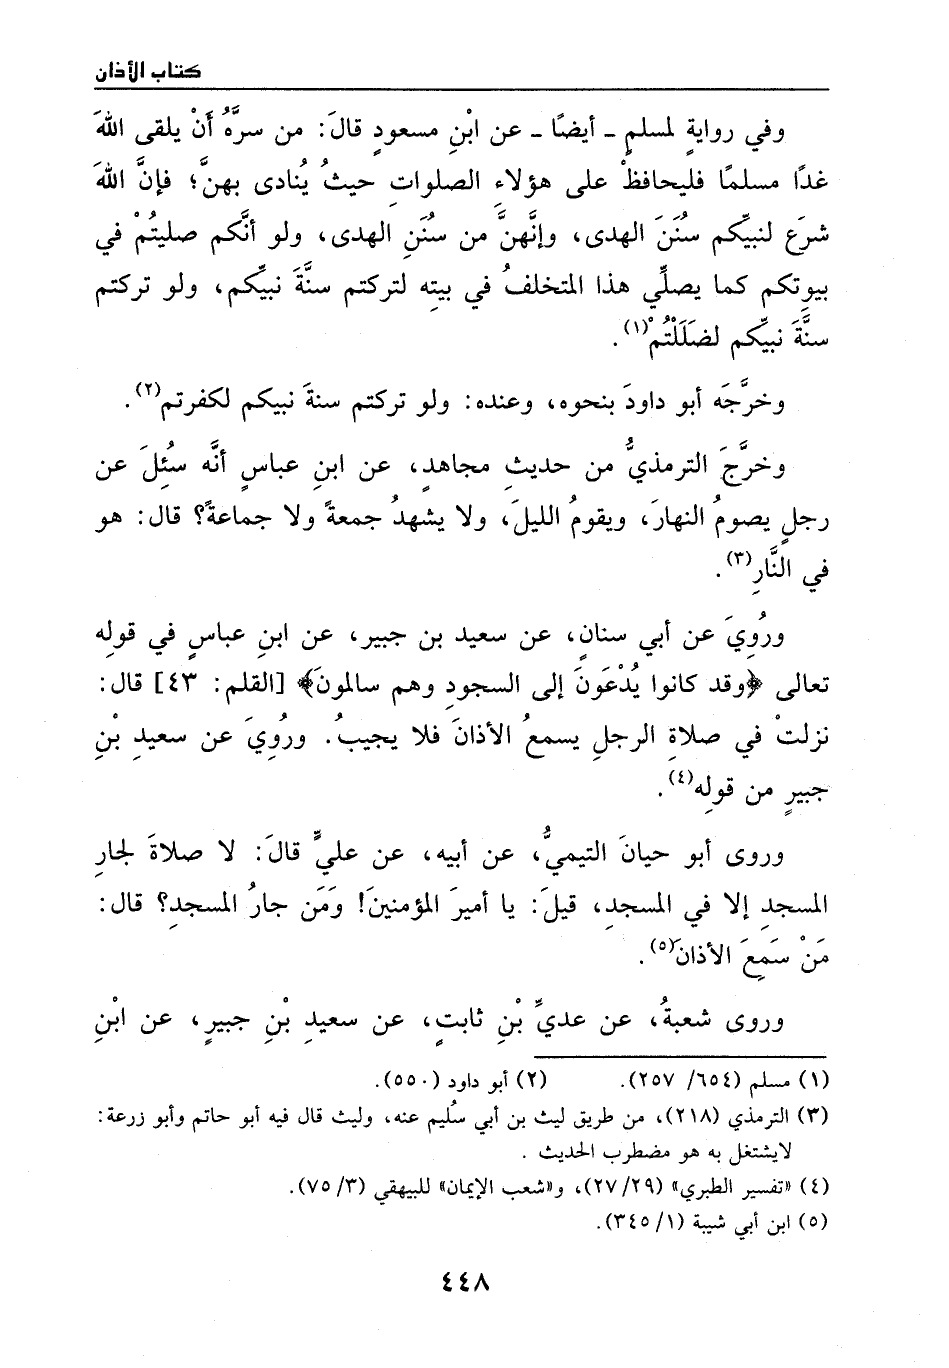 كتاب الأذان
وفي روايةٍ لمسلمٍ ـ أيضًا ـ عن ابْنِ مسعودٍ قالَ: من سرَّهُ أَنْ يلقى اللهَ
غدًا مسلمًا فليحافظْ على هؤلاءِ الصلواتِ حيثُ يُنادى بهنَّ؛ فإنَّ اللهَ
شرَع لنبيِّكم سُنَنَ الهدى، وإنَّهنَّ من سنُنَنِ الهدى، ولو أنَّكم صليتُمْ في
بيوتِكم كما يصلِّي هذا المتخلفُ في بيتِه لتركتم سنَّةَ نبيِّكم، ولو تركتم
سنَّةَ نبيِّكم لضَلَلْتُمْ(١).
وخرَّجَه أبو داودَ بنحوه، وعنده: ولو تركتم سنةَ نبيكم لكفرتم(٢).
وخرَّجَ الترمذيُّ من حديثِ مجاهدٍ، عن ابنِ عباسٍ أنَّه سُئِلَ عن
رجلٍ يصومُ النهارَ، ويقومُ الليلَ، ولا يشهدُ جمعةً ولا جماعةً؟ قال: هو
في النَّارِ(٣).
ورُوِيَ عن أبي سنانٍ، عن سعيد بن جبير، عن ابنِ عباسٍ في قولِه
تعالى ﴿وقد كانوا يُدْعَونَ إلى السجودِ وهم سالمونَ﴾ [القلم: ٤٣] قال:
نزلتْ في صلاةِ الرجلِ يسمعُ الأذانَ فلا يجيبُ. ورُوِيَ عن سعيدِ بْنِ
جبيرٍ من قولِه(٤).
وروى أبو حيانَ التيميُّ، عن أبيه، عن عليٍّ قالَ: لا صلاةَ لجارِ
المسجدِ إلا في المسجدِ، قيلَ: يا أميرَ المؤمنينَ! وَمَن جارُ المسجدِ؟ قال:
مَنْ سَمِعَ الأذانَ(٥).
وروى شعبةُ، عن عديِّ بْنِ ثابتٍ، عن سعيدِ بْنِ جبيرٍ، عن ابْنِ
(١) مسلم (٦٥٤/ ٢٥٧). (٢) أبو داود (٥٥٠).
(٣) الترمذي (٢١٨)، من طريق ليث بن أبي سُليم عنه، وليث قال فيه أبو حاتم وأبو زرعة:
لايشتغل به هو مضطرب الحديث .
(٤) «تفسير الطبري» (٢٧/٢٩)، و«شعب الإيمان» للبيهقي (٧٥/٣).
(٥) ابن أبي شيبة (٣٤٥/١).
٤٤٨